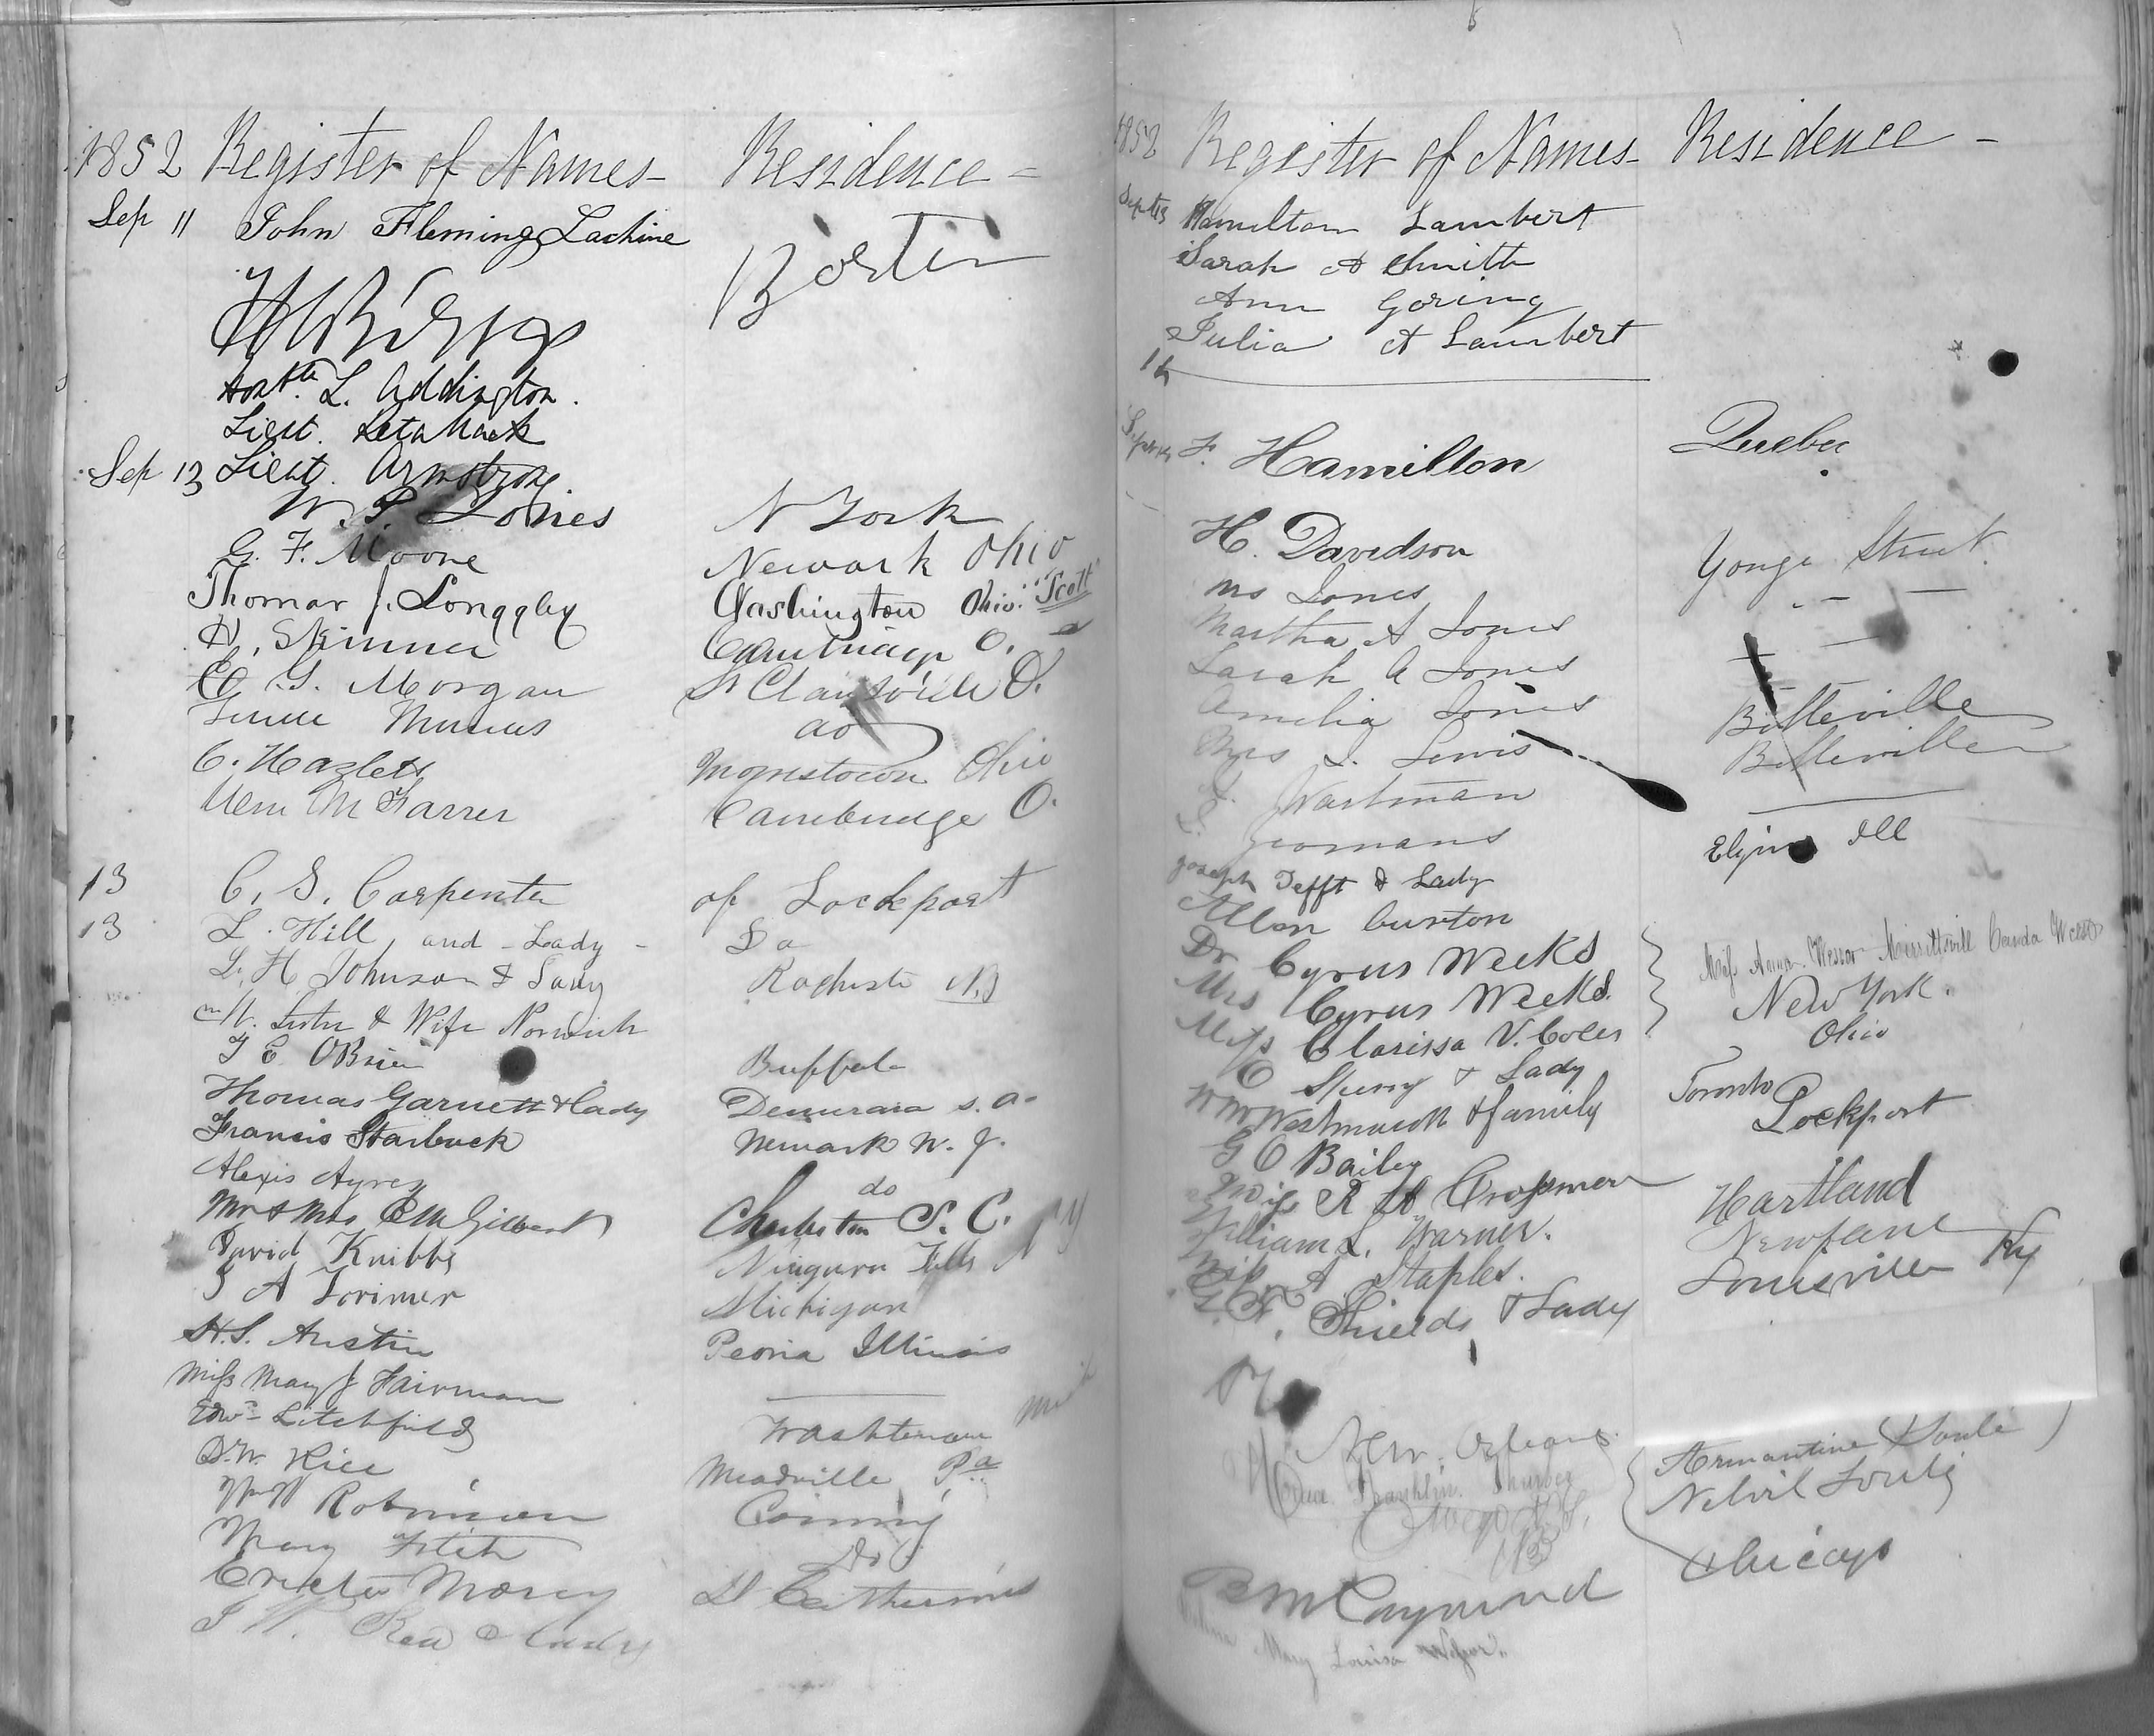 1852 Register of Names - Residence =
Sep 11 John Fleming Lachine
Boston
L. Addington.
Lieut.
Sep 13 Lieut. Armstrong
W. P. Jones N York
G. F. Moore Newark Ohio
Thomas J. Longgley Washington Ohio. Scott
H. Skinner Cambridge O.
G. Morgan St Clairsville O.
do
C. Hazlett Morristown Ohio
Wm McFarrer Cambridge O.
13 C. S. Carpenter of Lockport
13 L. Hill and - Lady - Do
L. H Johnson & Lady Rochester N.Y
Mr. Lister & Wife Norwich
T E OBrien Buffalo
Thomas Garnett & Lady Demerara S. A.
Francis Starbuck Newark N. J.
Alexis Ayres do
Mr & Mrs C M Gilbert Charleston S. C.
David Knibbs Niagara Falls N Y
S A Lorimer Michigan
H. S. Austin Peoria Illinois
Miss Mary J Fairman
Edwd Litchfield Washtenaw Mich
D. W. Rice Meadville Pa
Wm Robinson Corning
Mary Fitch Do
Morey St Catherines
J W. Rea & Lady
1852 Register of Names - Residence -
Sept 13 Hamilton Lambert
Sarah A Smith
Ann Goring
Julia A Lambert
14
Sept 14 F. Hamilton Quebec
H. Davidson Yonge Street
Mrs Jones
Martha A Jones
Sarah A Jones
Amelia Jones Belleville
Mrs S. Lewis Belleville
Wartman
Yeomans
Joseph Tefft & Lady Elgin Ill
Allen Burton
Dr Cyrus Weeks Miss Merrittsvill Canda West
Mrs Cyrus Weeks. New York.
Miss Clarissa V. Coles
C Sperry & Lady Ohio
Wm Westmacott & family Toronto
G C Bailey Lockport
Miss R A Crossman
William L. Warner. Hartland
Miss A Staples. Newfane
G. F. Shields & Lady Louisville Ky
New Orleans. Armantine Soulé
Franklin Thurber Nelvil Soulé
Oswego
B M Raymond Chicago
Mary Louisa